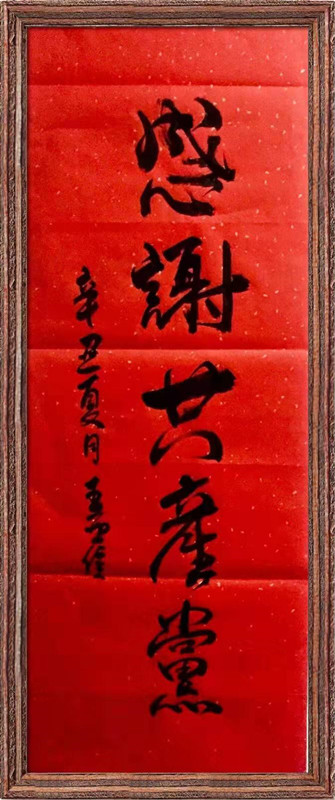 感謝共產黨
辛丑夏月 王